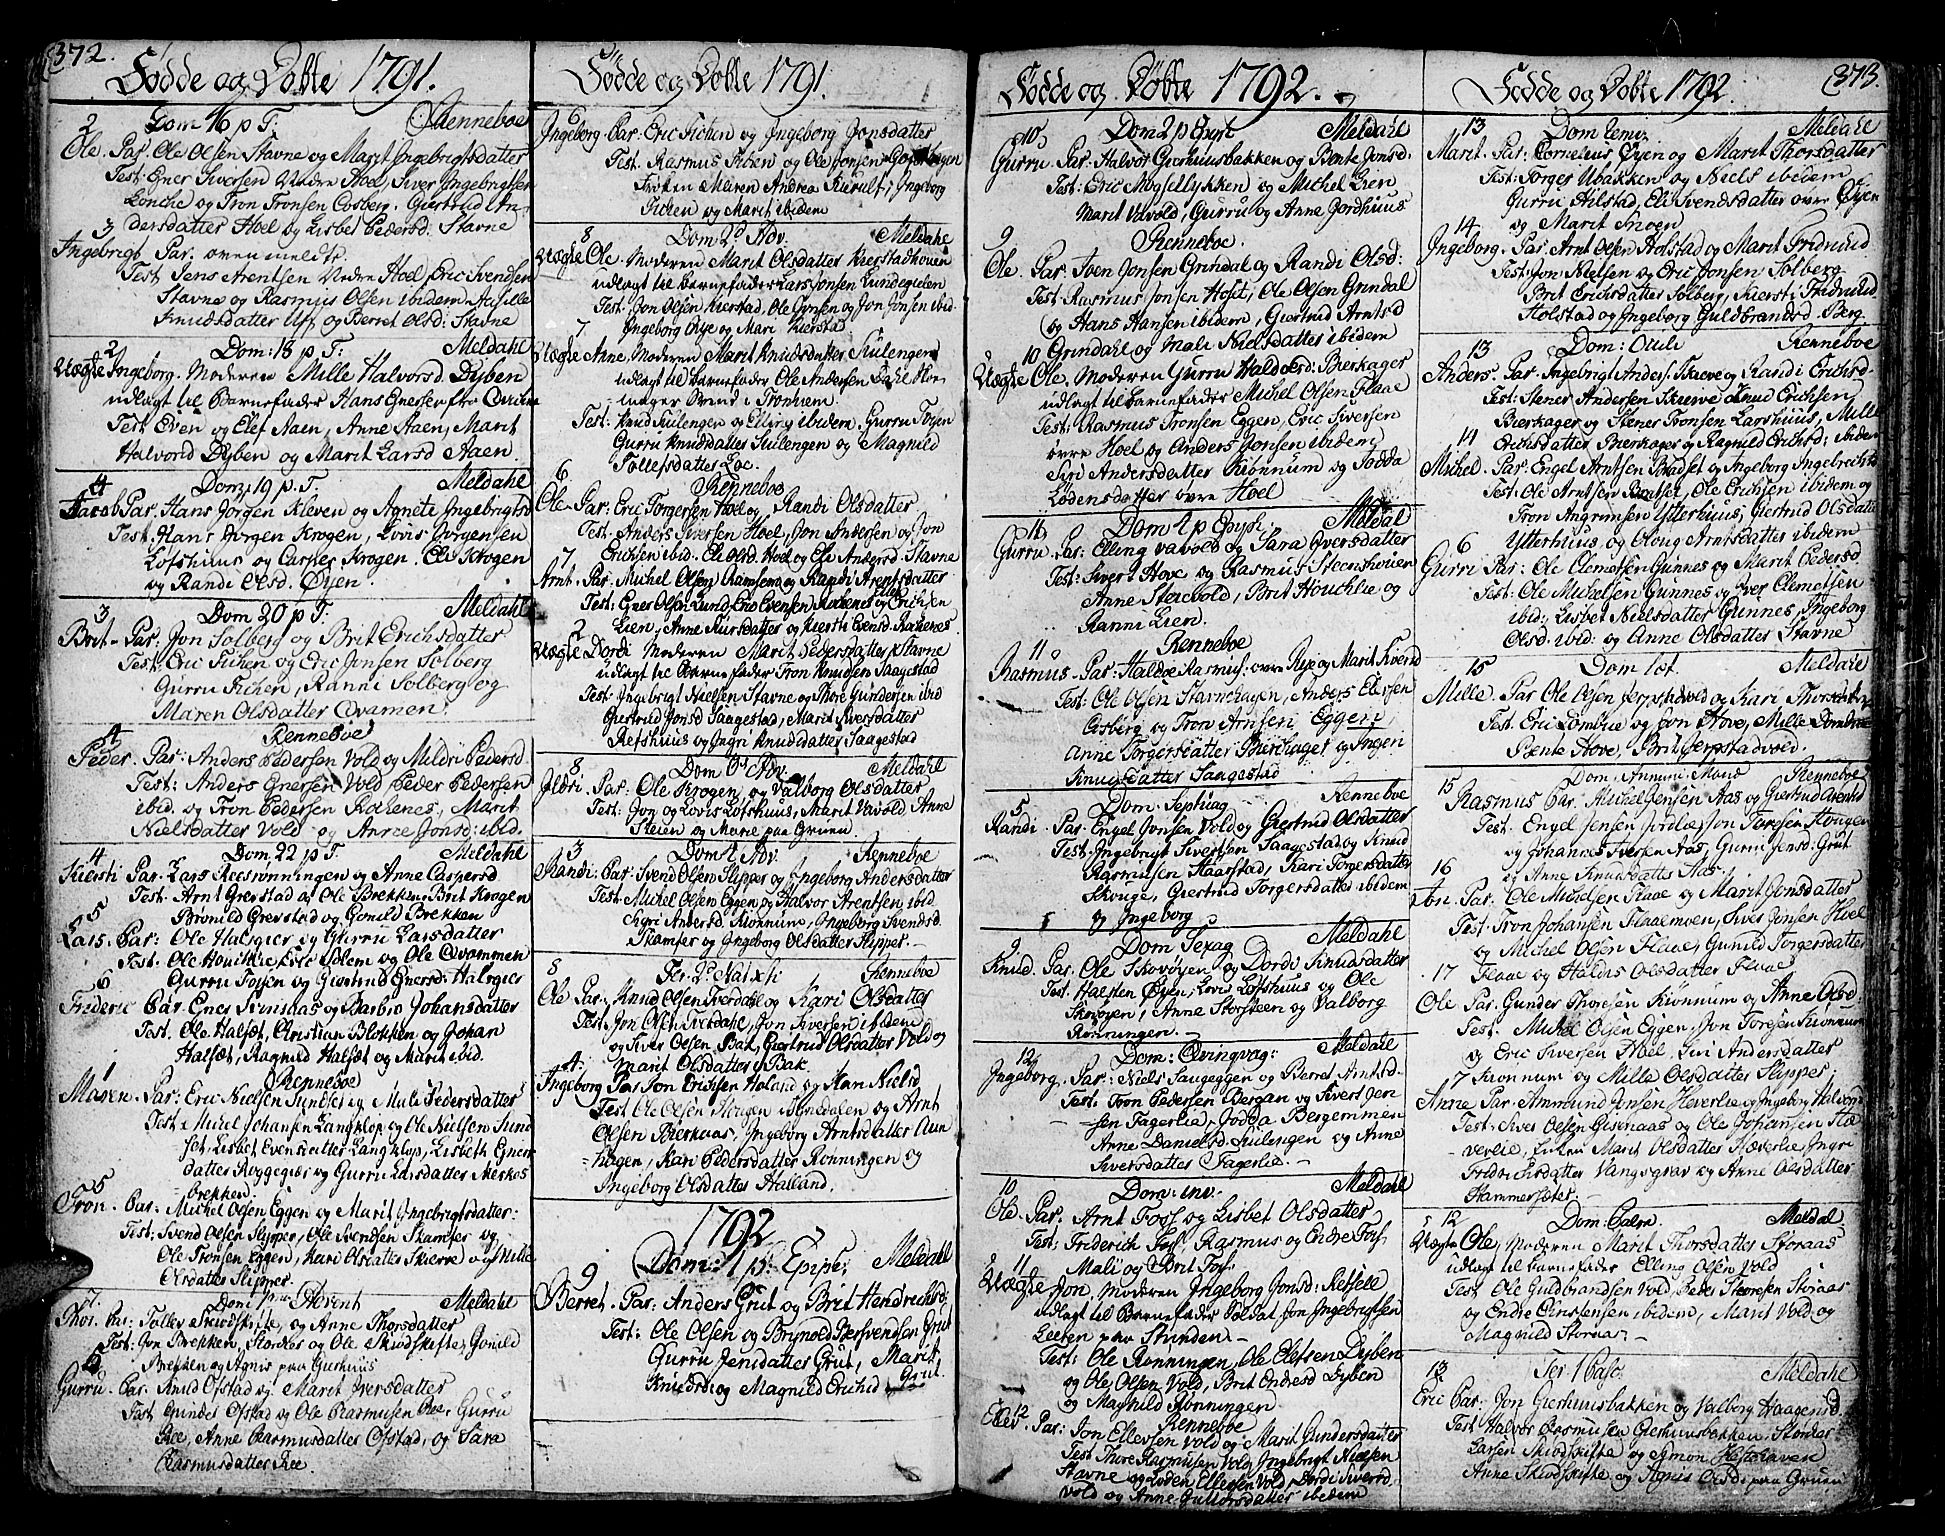 372.
Fødde og Døbte 1791.
2 Dom 16 p T. Renneboe
Ole. Par. Ole Olsen Stavne og Marit Ingebrigtsdatter
Test: Ener Siversen Nedre Hoel, Siver Ingebrigtsen
Lonche og Tron Tronsen Cosberg. Giertrud An-
3 dersdatter Hoel og Lisbet Pedersd: Stavne
Ingebrigt Par. oven meldte.
Test Jens Arentsen Nedre Hoel, Eric Svendsen
Stavne og Rasmus Olsen ibidem
Knudsdatter og Berret Olsd: Stavne
2 Dom: 18 p T: Meldahl
Uægte Ingeborg. Moderen Mille Halvorsd. Dyben
udlagt til Barnefader Hans Enersen
Test Even og Elef Aaen, Anne Aaen, Marit
Halvorsd Dyben og Marit Larsd Aaen.
4 Dom: 19 p. T. Meldahl
Jacob Par. Hans Jørgen Kleven og Agnete Ingebrigtsd
Test. Hans Jørgen Krogen, Lovis Jørgensen
Lofshuus og Casper Krogen. Ele Krogen
og Randi Olsd. Øyen.
3 Dom 20 p T. Meldahl
Brit. Par. Jon Solberg og Brit Erichsdatter
Test: Eric Fichen og Eric Jonsen Solberg
Gurru Fichen, Ranni Solberg og
Maren Olsdatter Qvamen.
4 Renneboe
Peder. Par: Anders Pedersen Vold og Mildri Pedersd
Test: Anders Enersen Vold Peder Pedersen
ibid. og Tron Pedersen Rochenes, Marit
Nielsdatter Vold og Anne Jonsd: ibid.
4 Dom 22 p T. Meldahl
Kiersti Par. Lars Reesrønningen og Anne Caspersd
Test. Arnt Grefstad og Ole Brekken, Brit Krogen
5 Bronild Grefstad og Gonild Brekken
Lars. Par: Ole Halsgier og Gurru Larsdatter
Test. Ole Idlem og Ole Qvammen
6 Gurru og Giertrud Enersd: Halsgier
Frederic Par. Ener Svinsaas og Barbro Johansdatter
Test. Ole Halsæt, Christian Blokken og Johan
Halsæt, Ragnild Halsæt og Marit ibid.
1 Renneboe
Maren. Par: Eric Nielsen Sundset og Mali Pedersdatter
Test: Johansen Langklop og Ole Nielsen Sund
set, Lisbet Evensdatter Langklop, Lisbeth Ener
datter Roggegier og Gurru Larsdatter Merkes
5 brekken.
Tron. Par: Michel Olsen Eggen og Marit Ingebrigtsdatter:
Test: Svend Olsen Slipper, Ole Svendsen Skamfer og
Ole Tronsen Eggen, Kari Olsdatter Skierve og Mille
Olsdatter Slipper.
7. Dom 1 Advent Meldahl
Thor. Par: Tolles Skiødskifte, og Anne Thorsdatter
Test: Jon Brekken, Størker og Ole Skiødskifte, Gunild
Brekken og Agnis paa Gierhuus
Gurru. Par. Knud Ofstad og Marit Iversdatter
Test: Ofstad og Ole Rasmusen Ree, Gurru
Ree, Anne Rasmusdatter Ofstad, og Sara
Rasmusdatter Ree.
Fødde og Døbte 1791.
6
Ingeborg Par: Eric Fichen og Ingeborg Jonsdatter
Test. Rasmus Fichen og Ole Jonsen
Frøken Maren Andrea Kurult; Ingeborg
Fichen og Marit ibidem
8 Dom 2 Adv. Meldahl
Uægte Ole: Moderen Marit Olsdatter Kierstadhouen
udlagt til Barnefader Lars Jonsen Lundegielen
Test: Jon Olsen Kierstad, Ole og Jon Jonsen ibid.
7. Ingeborg Rye og Mari Kierstad
Uægte Anne, Moderen Marit Knudsdatter Siulengen
udlagt til barnefader Ole Andersen Dahl Hve
mager Svend i Tronhiem.
Test: Knud Siulengen og Elling ibidem, Gurru
Gurru Knudsdatter Siulengen og Magnild
Tollefsdatter Loe.
6 Renneboe
Ole. Par: Eric Torgersen Hoel og Randi Olsdatter
Test. Anders Siversen Hoel, Jon Andersen og Jon
Erichsen ibid. Eli Olsd. Hoel og Eli Andersd. Stavne
7
Arnt Par. Michel Olsen Ramsem og Randi Arentsdatter
Test: Ener Olsen Lund, Eric Evensen Rochenes og Erichsen
Lien, Anne Siursdatter og Kiersti Evensd. Rochenes.
2
Uægte Dordi Moderen Marit Pedersdatter Stavne
udlagt til Barnefader Tron Knudsen Saagestad
Test: Ingebrigt Nielsen Stavne og Thore Gundersen ibid
Giertrud Jonsd Saagestad, Marit Siversdatter
Refshuus og Ingri Knudsdatter Saagestad
8 Dom 3 Adv. Meldahl
Ildri Par: Ole Krogen og Valborg Olsdatter
Test: Jon og Lovis Lofshuus, Marit Vavold, Anne
Steien og Marie paa Gruen.
3 Dom 4 Adv. Renneboe
Randi: Par: Svend Olsen Slipper og Ingeborg Andersdatter
Test: Michel Olsen Eggen og Halvor Arentsen, ibid
Sigri Andersd. Kronnum, Ingeborg Svendsd.
Skamfer og Ingeborg Olsdatter Slipper.
8 Fer. 2 Nat. Xsti Renneboe
Ole Par: Knud Olsen Tverdahl og Kari Olsdatter
Test: Jon Olsen Tverdahl, Jon Siversen ibidem
og Siver Olsen Bak, Giertrud Olsdatter Vold og
4. Marit Olsdatter Bak.
Ingeborg Par Jon Erichsen Havland og Nielsd
Test Ole Olsen Skogen i Sunedalen og Arnt
Olsen Bierkaas, Ingeborg Arntsdatter Aun
hagen, Kari Pedersdatter Rønningen og
Ingeborg Olsdatter Halland.
1792
Dom: 1 p: Epiph: Meldahl
9
Berret. Par: Anders Grut og Brit Hendrichsd:
Test: Ole Olsen og Brynold Bersvendsen Grut
Gurru Jensdatter Grut, Marit
Knudsd og Magnild Erichsd Grut.
Fødde og Døbte 1792.
10 Dom 2 p Epiph Meldahl
Gurru Par: Halvor Gierhuusbakken og Bente Jonsd.
Test: Eric Mogsetlykken og Michel Lien
Marit Vavold, Gurru og Anne Jordhuus
9 Renneboe.
Ole Par: Iven Jonsen Grindal og Randi Olsd:
Test: Rasmus Jonsen Hoset, Ole Olsen Grindal
og Hans Hansen ibidem, Giertrud Arntsd
10 Grindahl og Mali Nielsdatter ibidem
Uægte Ole, Moderen Gurru Haldoersd: Bierkager
udlagt til barnefader Michel Olsen Flaa
Test: Rasmus Tronsen Eggen, Eric Siversen
øvre Hoel og Anders Jonsen ibidem
Siri Andersdatter Kronnum og Jodda
Lodensdatter øvre Hoel
11 Dom 2 p Epiph: Meldal
Gurru Par: Elling Vavold og Sara Iversdatter
Test: Siver Hove og Rasmus Steenshouen
Anne Sterevold, Brit Houchlie og
Ranni Lien.
11 Renneboe
Rasmus. Par: Haldoe Rasmus: øvre Rye og Marit Siversd
Test: Ole Olsen Stavnehagen, Anders Estensen
Cosberg og Tron Arnsen Eggen,
Anne Torgersdatter Bierkager og Ingeri
Knudsdatter Saagestad
5 Dom: Septuag Renneboe
Randi. Par: Engel Jonsen Vold og Giertrud Olsdatter
Test. Ingebrigt Sivertsen Saagestad og Knud
Rasmusen Haarstad, Kari Torgersdatter
Skouge, Giertrud Torgersdatter ibidem
og Ingeborg
9 Dom Sexag Meldahl
Knud. Par: Ole Skovøyen og Dordi Knudsdatter
Test: Halsten Øyen, Lovis Lofshuus og Ole
Skovøyen, Anne Storsteen og Valborg
Rønningen.
12 Dom: Qvinqvag: Meldahl
Ingeborg. Par: Niels Saugeggen og Berret Arntsd.
Test: Tron Pedersen Bergan og Sivert Jen
sen Fagerlie, Jodda Bergemmen
Anne Danielsd. Siulengen og Anne
Siversdatter Fagerlie.
10 Dom: inv. Meldahl
Ole. Par: Arnt Foss og Lisbet Olsdatter
Test: Friderich Foss, Rasmus og Endre Foss,
11 Mali og Brit Foss.
Uægte Jon, Moderen Ingeborg Jonsd: Resfiell
udlagt til Barnefader Soldat Jon Ingebrigtsen
Leeten paa Strinden
Test: Ole Rønningen, Ole Elefsen Dyben
og Ole Olsen Vold, Brit Endresd Dyben
og Magnild Rønningen
12 Renneboe
Elev Par: Jon Ellevsen Vold og Marit Gundersdatter
Test Thore Rasmusen Vold, Ingebrigt Nielsen
Stavne og Loden Ellevsen Vold, Dordi Siversd
Vold og Anne Gullorsdatter ibidem
Fødde og Døbte 1792
373.
13 Dom Rem: Meldahl
Marit. Par: Cornelius Øyen og Marit Thorsdatter
Test: Jørges Ubakken og Niels ibidem
Gurru Hilstad, Eli Svendsdatter øvre Øyen
14. og Marit Snoen
Ingeborg. Par: Arnt Olsen Holstad og Marit Fridsund
Test: Jon Nielsen og Eric Jonsen Solberg
Brit Erichsdatter Solberg, Kiersti Fridsund
Holstad og Ingeborg Guldbrandsd. Berg.
13 Dom: Oculi Renneboe
Anders. Par: Ingebrigt Anders: Skaeve og Randi Erichsd
Test: Stener Andersen Skaerve, Knud Erichsen
Bierkager og Stener Tronsen Larshuus, Mille
14 Erichsdatter Bierkager og Ragnild Erichsd: ibidem
Michel. Par: Engel Arntsen Bradset og Ingeborg Ingebrechtsd
Test: Ole Arntsen Bratset, Ole Erichsen ibidem og
Tron Angrimsen Ytterhuus, Giertrud Olsdatter
6 Ytterhuus og Oloug Arntsdatter ibidem
Gurri Par: Ole Clemetsen Gunnes og Marit Pedersd
Test: Ole Michelsen Gunnes og Iver Clemetsen
ibid: Lisbet Nielsdatter Gunnes, Ingeborg
Olsd. ibid: og Anne Olsdatter Stavne
15 Dom Læt. Meldahl
Mille. Par Ole Olsen Jerpstadvold og Kari Thorsdatter
Test: Eric og Jon Hove, Mille
Bænte Hove, Brit Jerpstadvold.
15 Dom: Annunt: Mariæ Renneboe
Rasmus Par: Michel Jensen Aas og Giertrud Arentsd
Test: Engel Jensen Jordlie, Jon Toresen Hougen
og Johannes Iversen Aas, Gurru Jonsd: Grut
16 og Anne Knudsdatter Aas.
Jon. Par: Ole Michelsen Flaae og Marit Jonsdatter
Test: Tron Johansen Flaaemoen, Siver Jonsen Hoel
og Michel Olsen Flaae, Gunild Torgersdatter
17 Flaae og Haldis Olsdatter Flaae
Ole Par: Gunder Thoresen Kronnum og Anne Olsd.
Test. Michel Olsen Eggen, Jon Toresen Kronnum
og Eric Siversen Hoel, Siri Andersdatter
17 Kronnum og Mille Olsdatter Slipper.
Anne Par: Ammund Jensen Heverlie og Ingeborg Halvorsd
Test: Siver Olsen Gisenaas og Ole Johansen Hæ
verlie, Enken Marit Olsdatter Hæverlie, Ingri
Fridrichsdatter Vangsgrav og Anne Olsdatter
Hammersæter.
12 Dom: Palm. Meldal
Uægte Ole, Moderen Marit Thorsdatter Storaas
udlagt til barnefader Elling Olsen Vold
Test: Ole Guldbrandsen Vold, Peder Thoresen Storaas
og Endre Christensen ibidem, Marit Vold og
Magnild Storaas.
13 Fer 1 Pasc: Meldahl
Eric Par: Jon Gierhuusbakken og Valborg Haagensd
Test Halvor Rasmusen Gierhuusbakken, Størker
Larsen Skiødskifte og Symon Hesthaven
Anne Skiødskifte og Agnis Olsd: paa Gruen